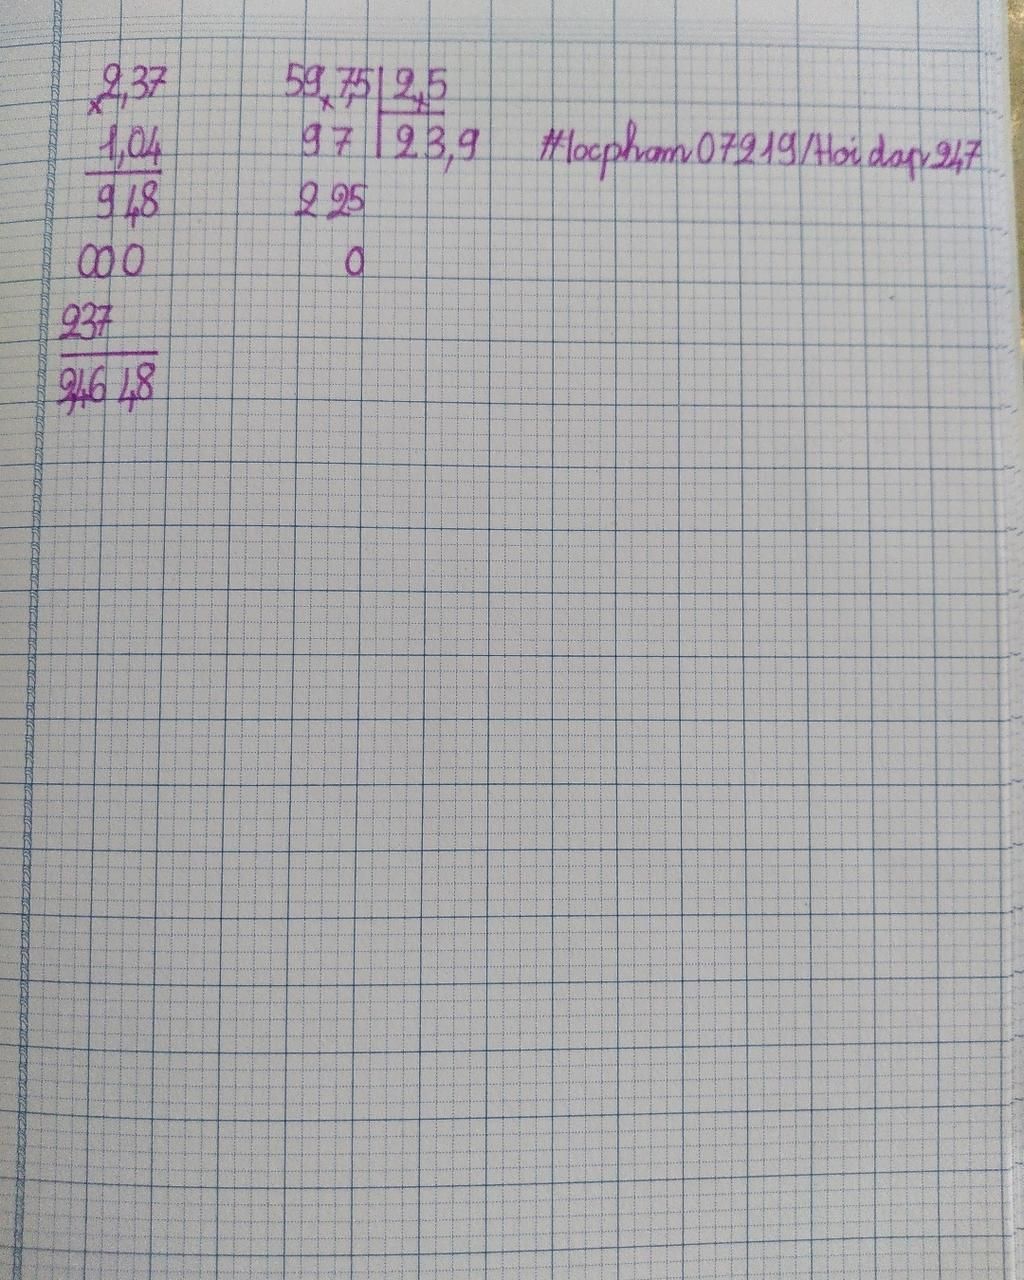 2,37
×
1,04
948
000
237
2,4648
59,7,5 2,5
97 23,9
225
0
#locpham07219/Hoidap247